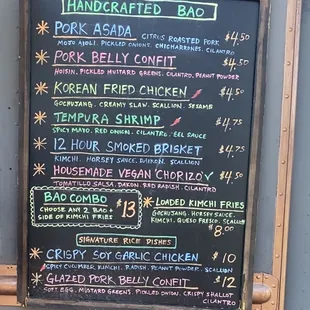 HANDCRAFTED BAO
PORK ASADA CITRUS ROASTED PORK $4.50
MOJO AJOLI, PICKLED ONIONS, CHICHARRONES, CILANTRO
PORK BELLY CONFIT $4.50
HOISIN, PICKLED MUSTARD GREENS, CILANTRO, PEANUT POWDER
KOREAN FRIED CHICKEN $4.50
GOCHUJANG, CREAMY SLAW, SCALLION, SESAME
TEMPURA SHRIMP $4.75
SPICY MAYO, RED ONION, CILANTRO, EEL SAUCE
12 HOUR SMOKED BRISKET $4.75
KIMCHI, HORSEY SAUCE, DAIKON, SCALLION
HOUSEMADE VEGAN 'CHORIZO' $4.50
TOMATILLO SALSA, DAKON, RED RADISH, CILANTRO
BAO COMBO
CHOOSE ANY 2 BAO + $13
SIDE OF KIMCHI FRIES
LOADED KIMCHI FRIES
GOCHUJANG, HORSEY SAUCE,
KIMCHI, QUESO FRESCO, SCALLION
$8.00
SIGNATURE RICE DISHES
CRISPY SOY GARLIC CHICKEN $10
SPICY CUCUMBER, KIMCHI, RADISH, PEANUT POWDER, SCALLION
GLAZED PORK BELLY CONFIT $12
SOFT EGG, MUSTARD GREENS, PICKLED ONION, CRISPY SHALLOT
CILANTRO